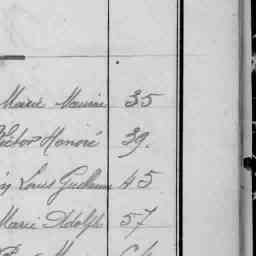 Marie Maurice 35
Victor Honoré 39.
Louis Guillaume 45
Marie Adolph 57